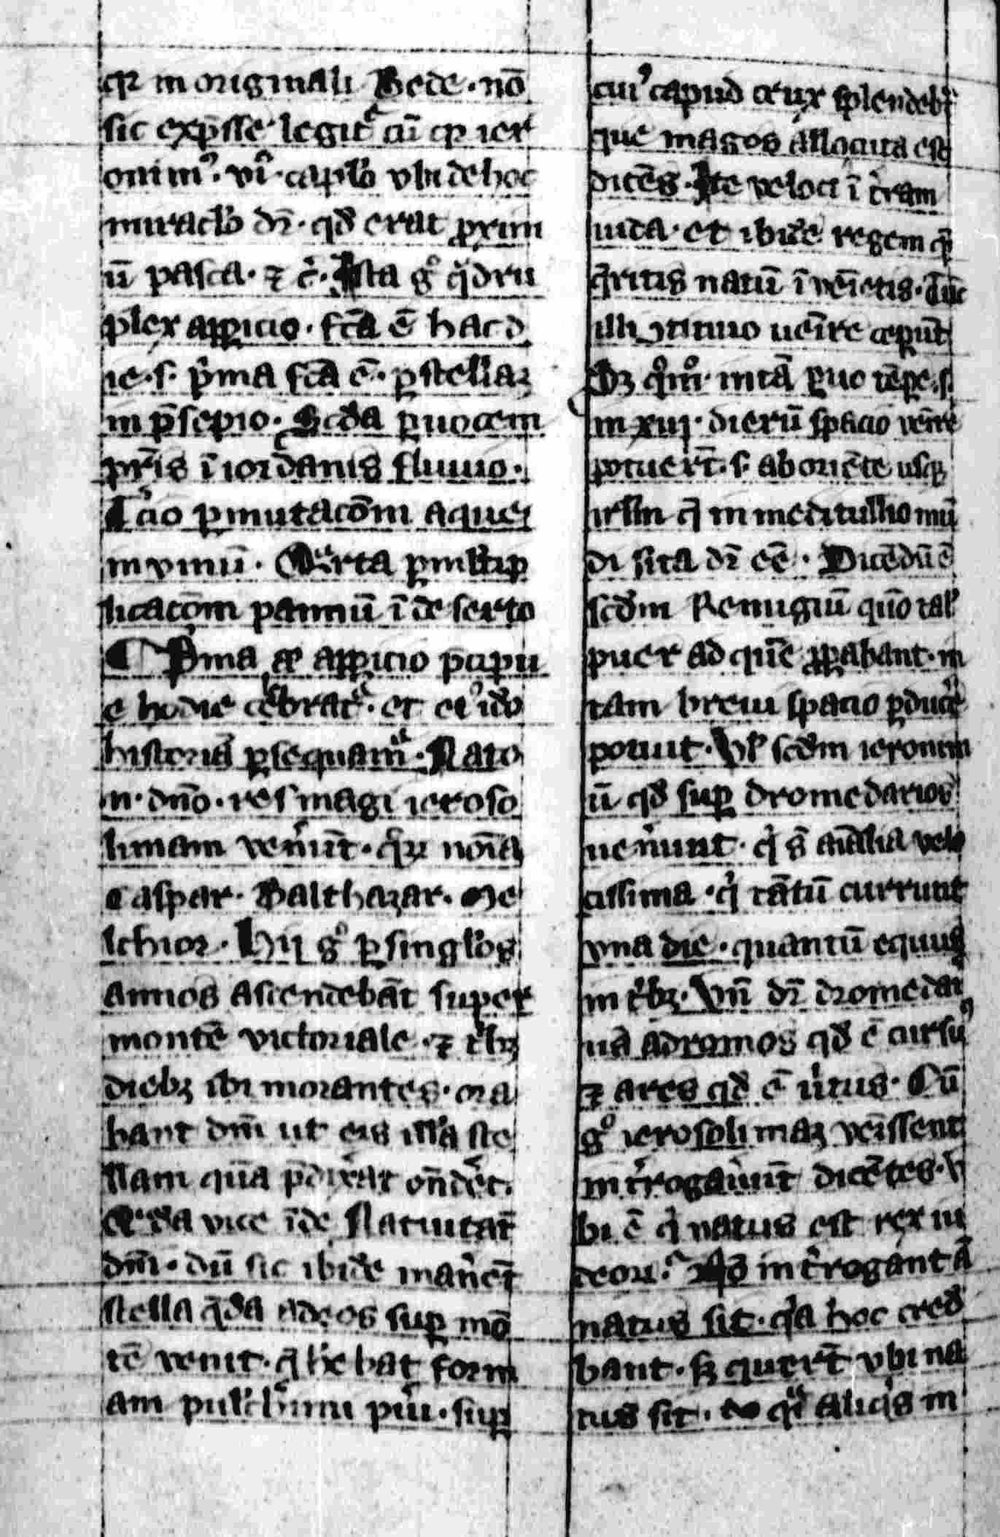 qr in originali Bede · nō
sic exp̄sse legit᷑ cū qꝫ ier
onim⁹ · vi · capl̓o vbi de hoc
miracl̓o dr̄ · qd̓ erat ꝓxim
ū pasca · ⁊ c̓ · Ista g° q̓dru
plex apꝑicio · fc̄a ē hac d
ie · s · p̓ma fc̄a ē · ꝑ stellaꝫ
in p̄sepio · Scd̓a ꝑ uocem
pr̄is ī iordanis fluuio ·
Tc̓io ꝑ mutacōm aque
in vinū · Qᵃrta ꝑ ml̓tip
licacōm pannū ī deserto
P̓ma apꝑicio p̄cipu
e hodie cēbrat᷑ · et ei⁹ id̓o
historiā ꝑsequam᷑ · Nato
· n · dn̄o · res magi ieroso
limam ven̓ūt · qr̓ꝫ noīa
Caspar · Balthazar · Me
lchior · Hij g° ꝑ singl̓os
annos ascendebāt super
montē victoriale · ⁊ t̓bꝫ
diebꝫ ibi morantes · ora
bant dm̄ ut eis illā ste
llam quā p̄dix̓at on̄det̓
vice īde Natiuitat̄
dm̄ · dū sic ibid̓e man̓et̄
stella q̄d̓a ad eos suꝑ mō
tē venit · q̄ hēbat form
am pulc̓h̓rimi pu̓i · suꝑ
cui⁹ capud crux splendeb̓t
que magos allocuta est
dicēs · Ite veloci ī t̓ram
iuda · et ibid̓e regem q̄
q̄ritis natū īveīetis · Tūc
illi ꝯtinuo ueīre ceper̄t
Sꝫ q̓m° · in tā ꝑuo tēpe · s
in xiij · dierū spacio venīre
potuer̄t · s · ab oriēte usqꝫ
irl̓m q̄ in meditullio mū
di sita dr̄ eē · Dicēdū ē
scd̓m Remigiū quō tal̓
puer ad quē ꝓꝑabant · in
tam breui spacio ꝑduce̓
potuit · Vl̓ scd̓m ieronim
ū qd̓ suꝑ dromedarios
uen̓unt · q̓ s̄ aīalia velo
cissima · q̓ tātū currunt
vna die · quantū equus
in t̓bꝫ · Vn̄ dr̄ dromedar
ua a dromos qd̓ ē cursu⁹
⁊ ares qd̓ ē u̓tus · Cū
g° ierosolimaꝫ veīssent
int̓rogauūt dicētes · V
bi ē q̓ natus est rex iu
deoꝝ · Nō int̓rogant ā
natus sit · q̓a hoc cred̓
bant · sꝫ quer̄t vbi na
tus sit · aliq̓s in